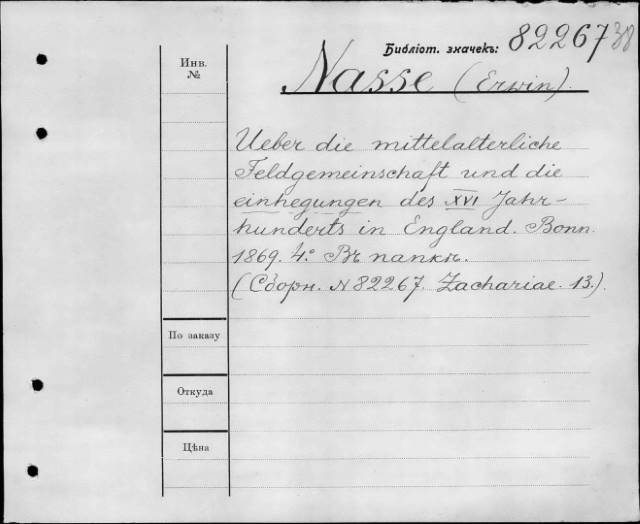 Библіот. значекъ: 82267 38
Инв. №
Nasse (Erwin).
Ueber die mittelalterliche
Feldgemeinschaft und die
einhegungen des XVI Jahr-
hunderts in England. Bonn.
1869. 4.º Въ папкѣ.
(Сборн. N 82267. Zachariae. 13.).
По заказу
Откуда
Цѣна